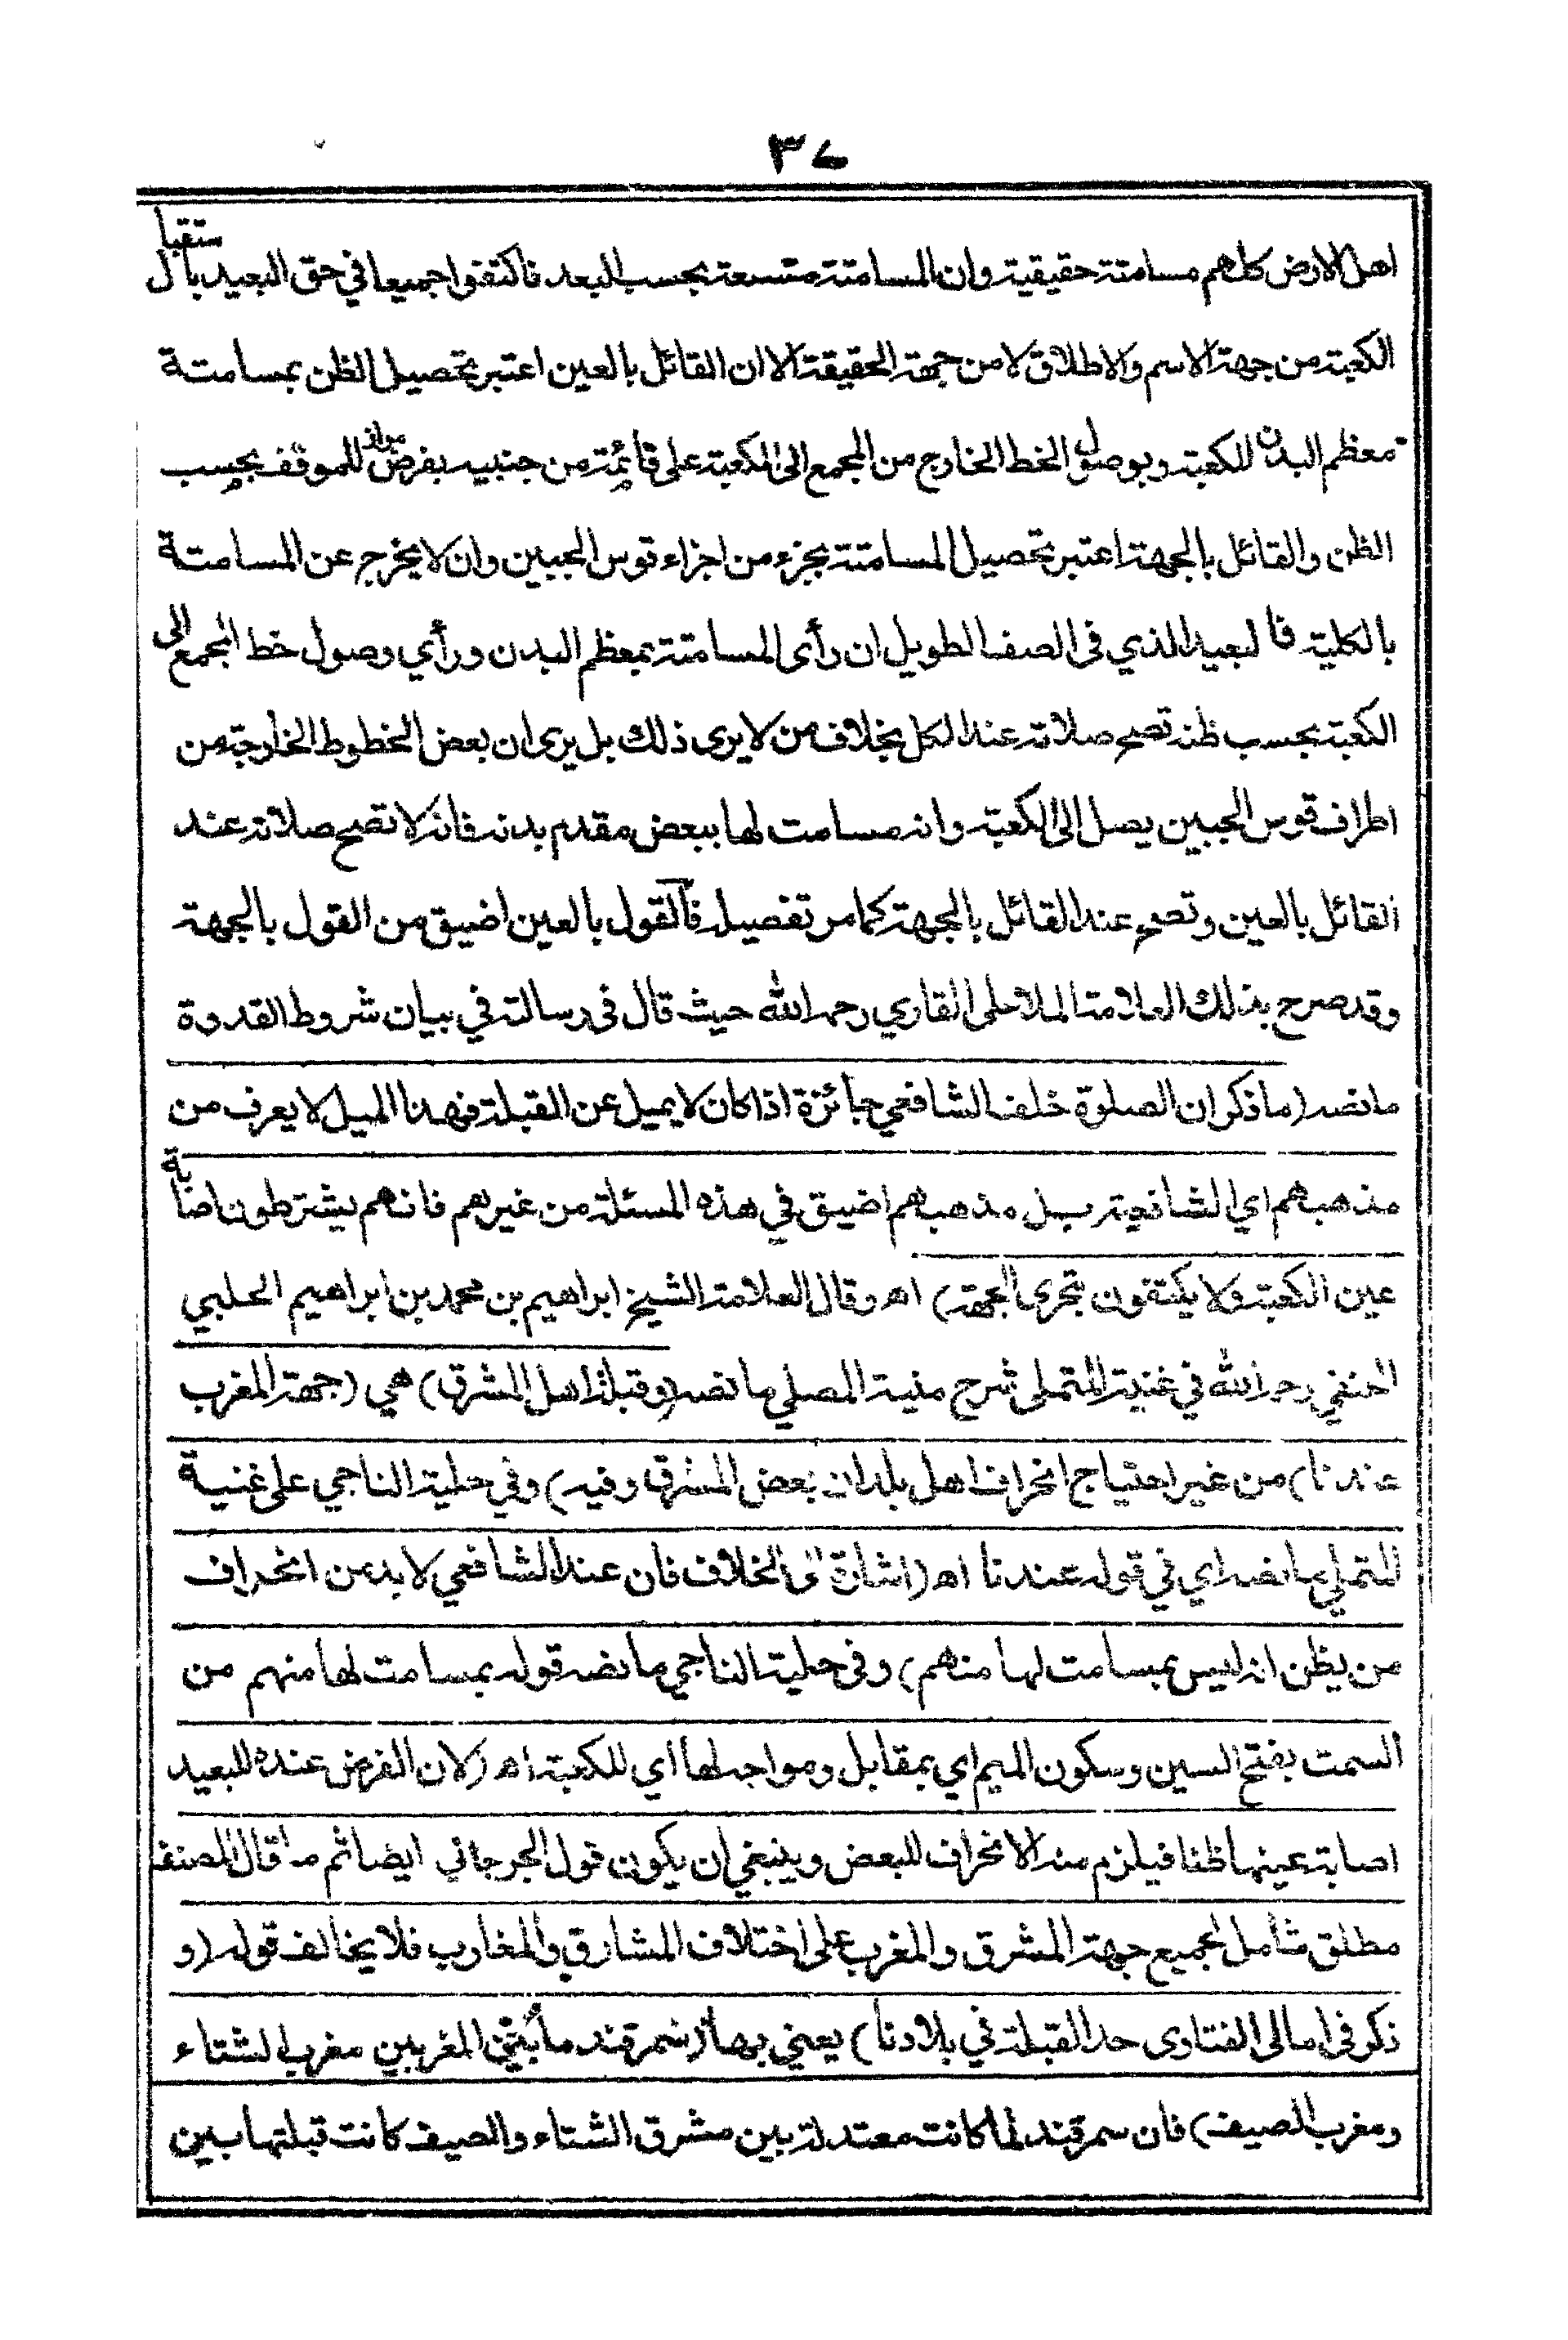 ٣٧
اهل الارض كلهم مسامتة حقيقية وان المسامتة متسعة بحسب البعد فاكتفوا جميعا في حق البعيد باستقبال
الكعبة من جهة الاسم والاطلاق لا من جهة الحقيقة الا ان القائل بالعين اعتبر تحصيل الظن بمسامتة
معظم البدن للكعبة وبوصول الخط الخارج من المجمع الى الكعبة على قائمة من جنبيه بفرض مواز للموقف بحسب
الظن والقائل بالجهة اعتبر تحصيل المسامتة بجزء من اجزاء قوس الجبين وان لا يخرج عن المسامتة
بالكلية فالبعيد الذي في الصف الطويل ان رأى المسامتة بمعظم البدن ورأي وصول خط المجمع الى
الكعبة بحسب ظنه تصح صلاته عند الكل بخلاف من لا يرى ذلك بل يرى ان بعض الخطوط الخارجة من
اطراف قوس الجبين يصل الى الكعبة وانه مسامت لها ببعض مقدم بدنه فانه لا تصح صلاته عند
القائل بالعين وتصح عند القائل بالجهة كما مر تفصيله فالقول بالعين اضيق من القول بالجهة
وقد صرح بذلك العلامة الملا على القاري رحمه الله حيث قال في رسالته في بيان شروط القدوة
ما نصه (ما ذكر ان الصلوة خلف الشافعي جائزة اذا كان لا يميل عن القبلة فهذا الميل لا يعرف من
مذهبهم اي الشافعية بل مذهبهم اضيق في هذه المسئلة من غيرهم فانهم يشترطون اصابة
عين الكعبة ولا يكتفون بتحرى الجهة) اه وقال العلامة الشيخ ابراهيم بن محمد بن ابراهيم الحلبي
الحنفي رحمه الله في غنية المتملى شرح منية المصلي ما نصه (وقبلة اهل المشرق) هي (جهة المغرب
عندنا) من غير احتياج انحراف اهل بلدان بعض المشرق وفيه) وفي حلية الناجي على غنية
المتملي ما نصه اي في قوله عندنا اه (اشارة الى الخلاف فان عند الشافعي لا بد من انحراف
من يظن انه ليس بمسامت لها منهم) وفى حلية الناجي ما نصه قوله بمسامت لها منهم من
السمت بفتح السين وسكون الميم اي بمقابل ومواجه لها اي للكعبة اه (لان الفرض عنده للبعيد
اصابة عينها ظنا فيلزم منه الانحراف للبعض وينبغي ان يكون قول الجرجاني ايضا ثم ما قال المصنف
مطلق شامل لجميع جهة المشرق والمغرب على اختلاف المشارق والمغارب فلا يخالف قوله (و
ذكر في امالى الفتاوى حد القبلة في بلادنا) يعني بها (سمرقند ما بين المغربين مغرب الشتاء
ومغرب الصيف) فان سمرقند لما كانت معتدلة بين مشرق الشتاء والصيف كانت قبلتها بين